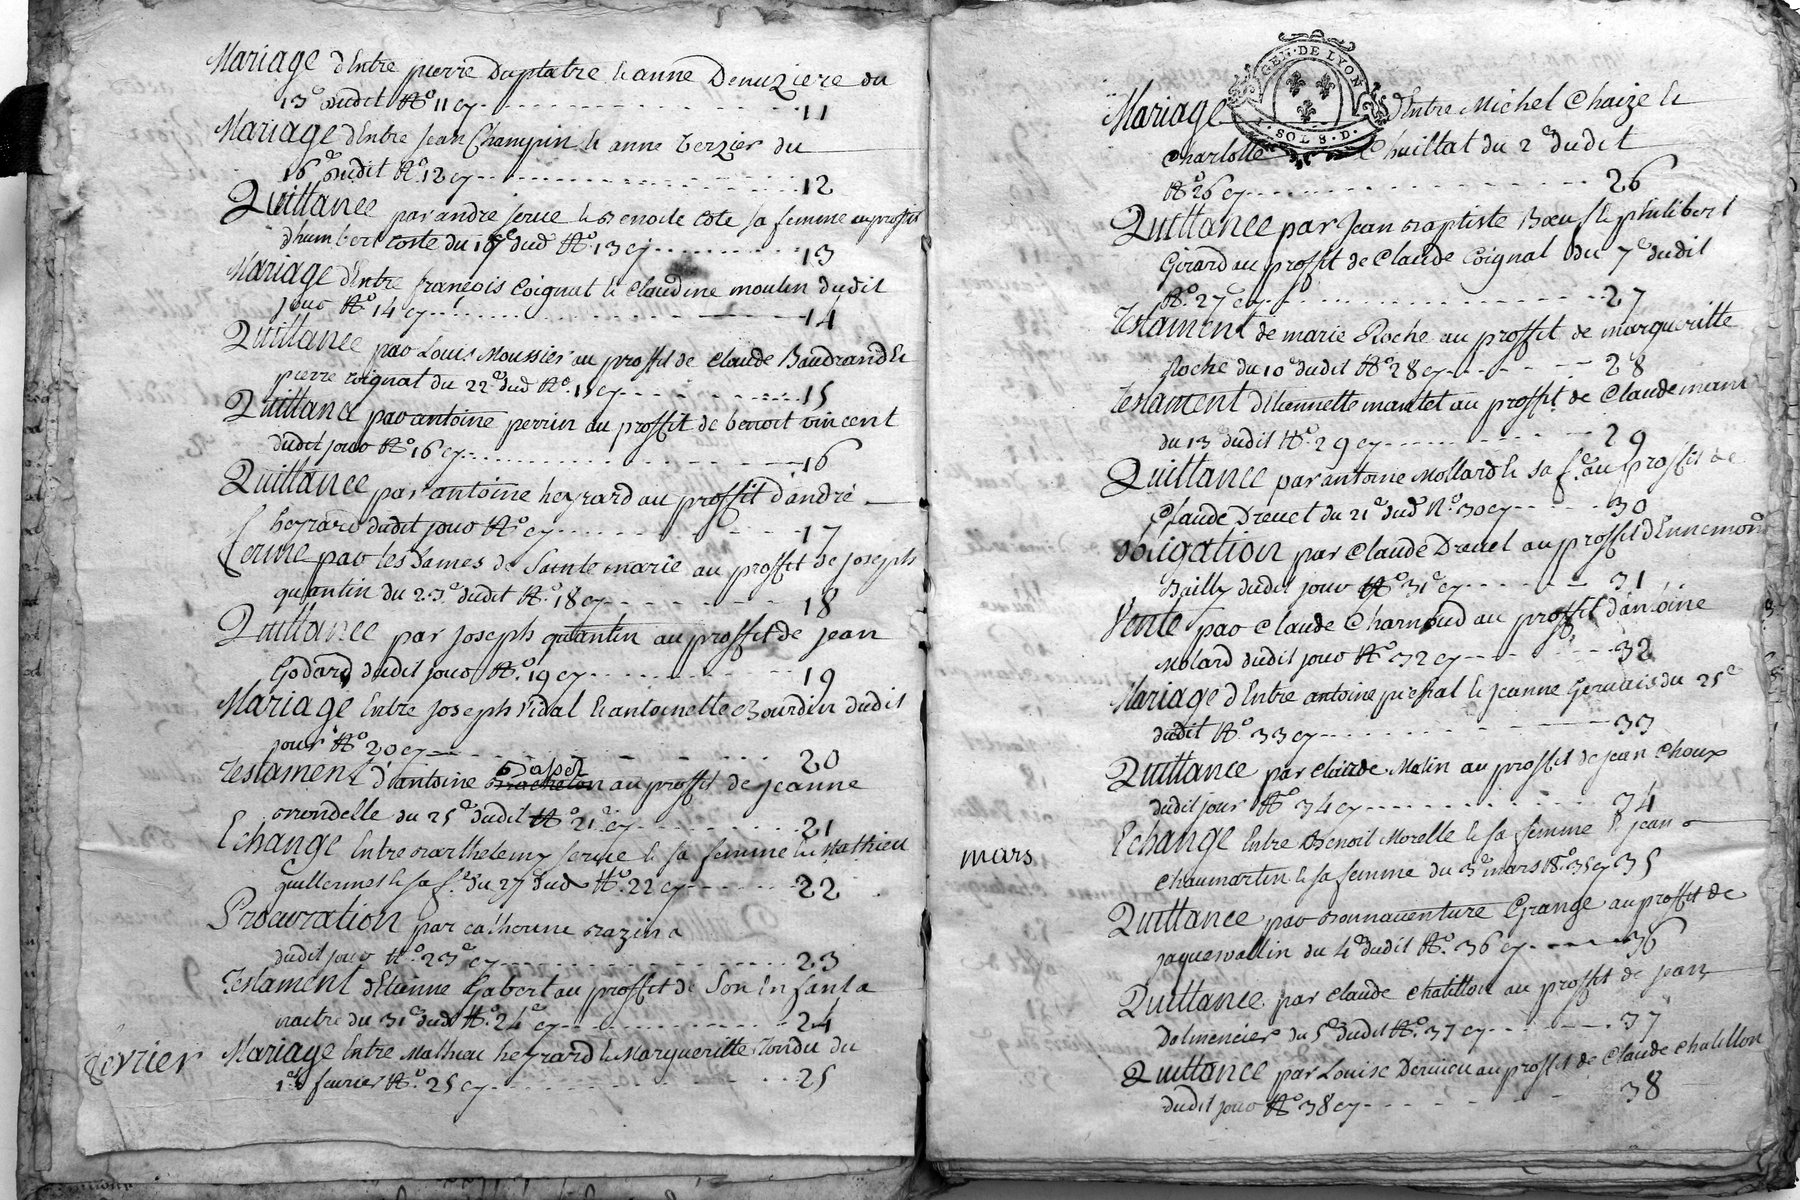 Mariage d'Entre pierre Duplatre & anne Denuziere du
13e dudit No 11 cy 11
Mariage d'Entre Jean Champin & anne Verzier du
16e dudit No 12 cy 12
Quittance par andre serve & Benoite Coste sa femme au proffit
d'humbert Coste du 18e dud No 13 cy 13
Mariage d'Entre françois Coignat & Claudine moulin dudit
jour No 14 cy 14
Quittance par Louis Moussier au proffit de Claude Baudrand &
pierre coignat du 22e dud No 15 cy 15
Quittance par antoine perrin au proffit de benoit vincent
dudit jour No 16 cy 16
Quittance par antoine heyrard au proffit d'andré
heyrard dudit jour No cy 17
ferme par les Dames de Sainte marie au proffit de joseph
quantin du 23e dudit No 18 cy 18
Quittance par joseph quantin au proffit de jean
Godard dudit jour No 19 cy 19
Mariage Entre joseph Vidal & antoinette Bourdin dudit
jour No 20 cy 20
Testament d'antoine au proffit de jeanne
mondelle du 25e dudit No 21e cy 21
Echange Entre Barthelemy serve & sa femme & Mathieu
guillermet & sa fe du 27e dud No 22 cy 22
Procuration par catherine Bazin a
dudit jour No 23e cy 23
Testament d'Etienne Gabert au proffit de Son Enfant a
naitre du 31e dud No 24e cy 24
fevrier
Mariage Entre Mathieu heyrard & Margueritte Tondu du
1er fevrier No 25 cy 25
GEN. DE LYON
SOLS. D.
Mariage d'Entre Michel Chaize &
Charlotte Chuillat du 2e dudit
No 26 cy 26
Quittance par Jean Baptiste Bœuf & philibert
Girard au proffit de Claude Coignat du 7e dudit
No 27e cy 27
Testament de marie Roche au proffit de margueritte
Roche du 10e dudit No 28 cy 28
Testament d'Etiennette mantet au proffit de Claude
du 13e dudit No 29 cy 29
Quittance par antoine Mollard & sa fe au proffit de
Claude Drevet du 21e dud No 30 cy 30
obligation par Claude Drevet au proffit d'Ennemond
Bailly dudit jour No 31e cy 31
Vente par Claude Charnoud au proffit d'antoine
Molard dudit jour No 32 cy 32
Mariage d'Entre antoine & jeanne Gervais du 25e
dudit No 33 cy 33
Quittance par Claude Matin au proffit de jean Choux
dudit jour No 34 cy 34
mars
Echange Entre Benoit Morelle & sa femme & jean
Chaumartin & sa femme du 3e mars No 35 cy 35
Quittance par Bonnaventure Grange au proffit de
jaques vallin du 4e dudit No 36 cy 36
Quittance par Claude Chatillon au proffit de jean
du 5e dudit No 37 cy 37
Quittance par Louise au proffit de Claude Chatillon
dudit jour No 38 cy 38